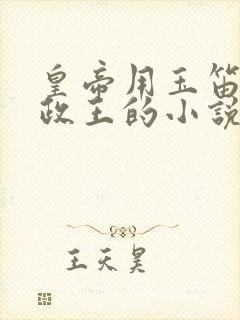 皇帝用玉笛
政王的小說
王天昊